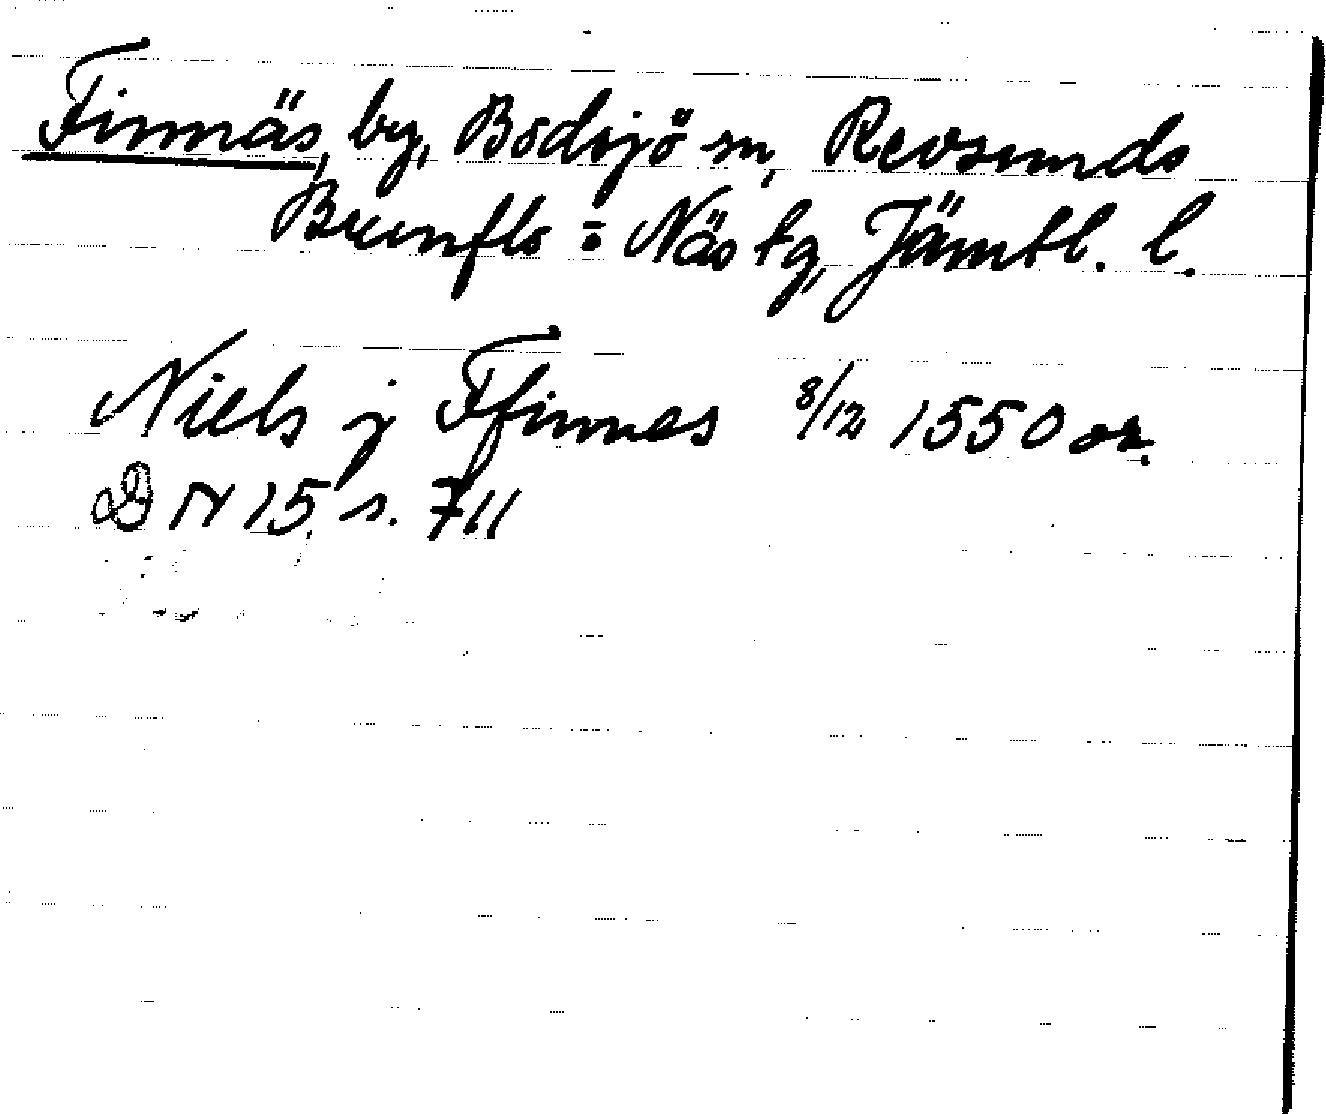 Finnäs, by, Bodsjö sn, Revsunds
Brunflo = Näs tg, Jämtl. l.
Niels j Ffinnes 8/12 1550 or.
DN 15, s. 711